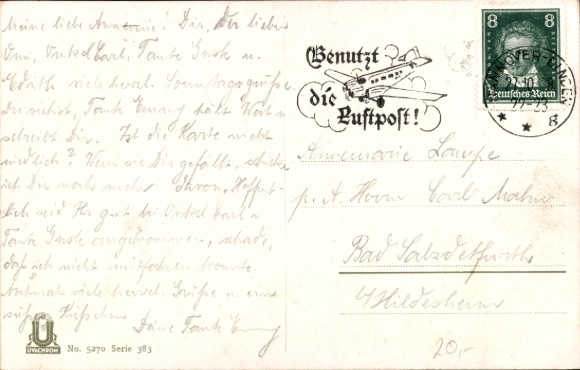 Meine liebe Annemarie! Dir, der lieben
Omi, Onkel Carl, Tante Guste u.
Edith viele herzl. Sonntagsgrüße.
Du siehst, Tante Emmy hält Wort u.
schreibt Dir. Ist die Karte nicht
niedlich? Wenn sie Dir gefällt, schicke
ich Dir noch mehr davon. Hoffent-
lich seid Ihr gut bei Onkel Carl u.
Tante Guste angekommen, schade,
daß ich nicht mitfahren konnte.
Nochmals viele herzl. Grüße u. einen
süßen Küßchen
Deine Tante Emmy
UVACHROM
No. 5270 Serie 383
Benutzt
die
Luftpost!
8 8
Deutsches Reich
HANNOVER-LINDEN
22-23
8
Annemarie Lampe
p. A. Herrn Carl
Bad Salzdetfurth
b/Hildesheim
20,-